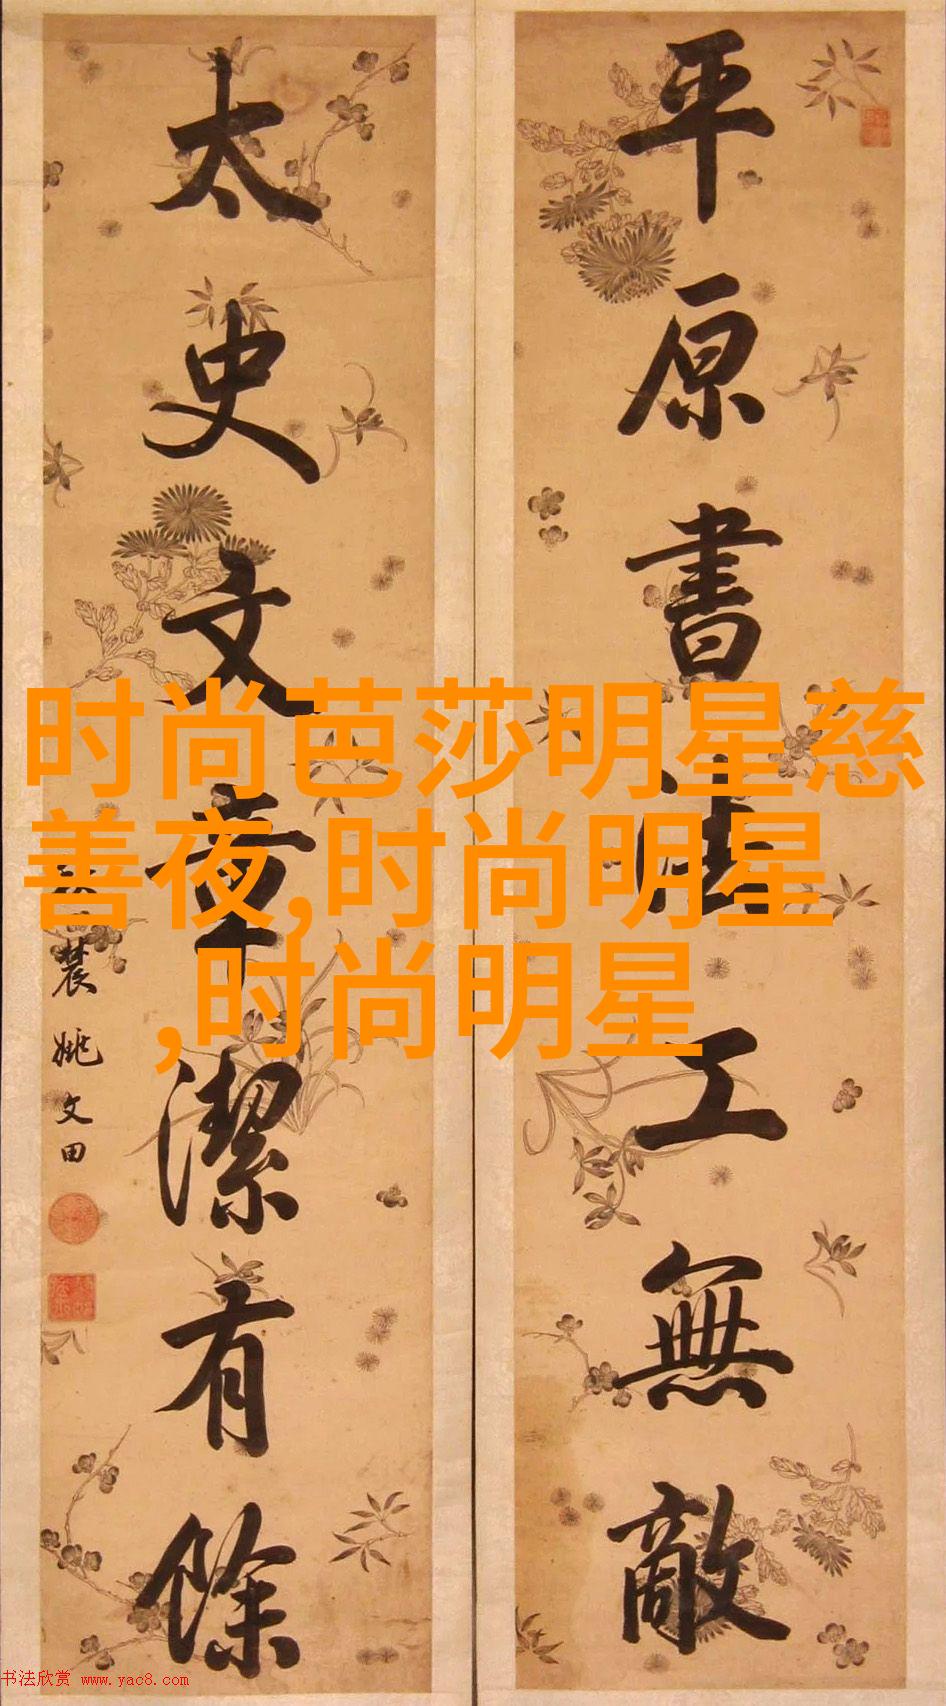 平原書法工無敵
太史文章潔有餘
農姚文田
时尚芭莎明星慈
善夜,时尚明星
,时尚明星
书法欣赏 www.yac8.com